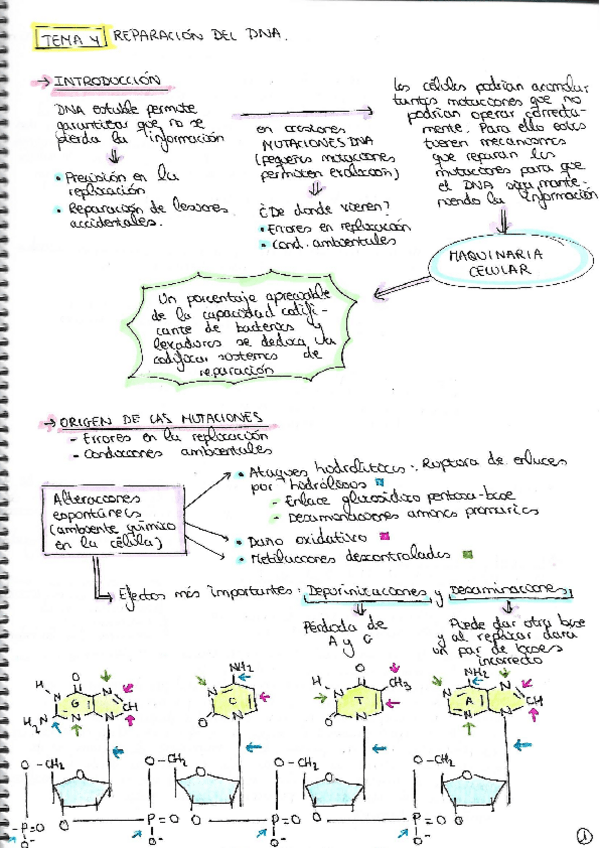 TEMA 4 REPARACIÓN DEL DNA.
→ INTRODUCCIÓN
DNA estable permite
garantizar que no se
pierda la información
• Precisión en la
replicación
• Reparación de lesiones
accidentales.
en ocasiones
MUTACIONES DNA
(pequeñas mutaciones
permiten evolución)
¿De donde vienen?
• Errores en replicación
• Cond. ambientales
Las células podrían acumular
tantas mutaciones que no
podrían operar correcta-
mente. Para ello estas
tienen mecanismos
que reparan las
mutaciones para que
el DNA siga mante-
niendo la información
MAQUINARIA
CELULAR
Un porcentaje apreciable
de la capacidad codifi-
cante de bacterias y
levaduras se dedica a
codificar sistemas de
reparación
→ ORIGEN DE LAS MUTACIONES
- Errores en la replicación
- Condiciones ambientales
Alteraciones
espontáneas
(ambiente químico
en la célula)
• Ataques hidrolíticos: Ruptura de enlaces
por hidrólisis
- Enlace glucosídico pentosa-base
- Desaminaciones aminas primarias
• Daño oxidativo
• Metilaciones descontroladas
Efectos más importantes: Depurinizaciones y Desaminaciones
Pérdida de
A y G
Puede dar otra base
y al replicar dará
un par de bases
incorrecto
O NH2 O NH2
H N N N H N CH3 N N
G C T A
H2N N N CH O N O N N N CH
O-CH2 O-CH2 O-CH2 O-CH2
O O O O
-P=O O P=O O O P=O O
O- O- O-
1